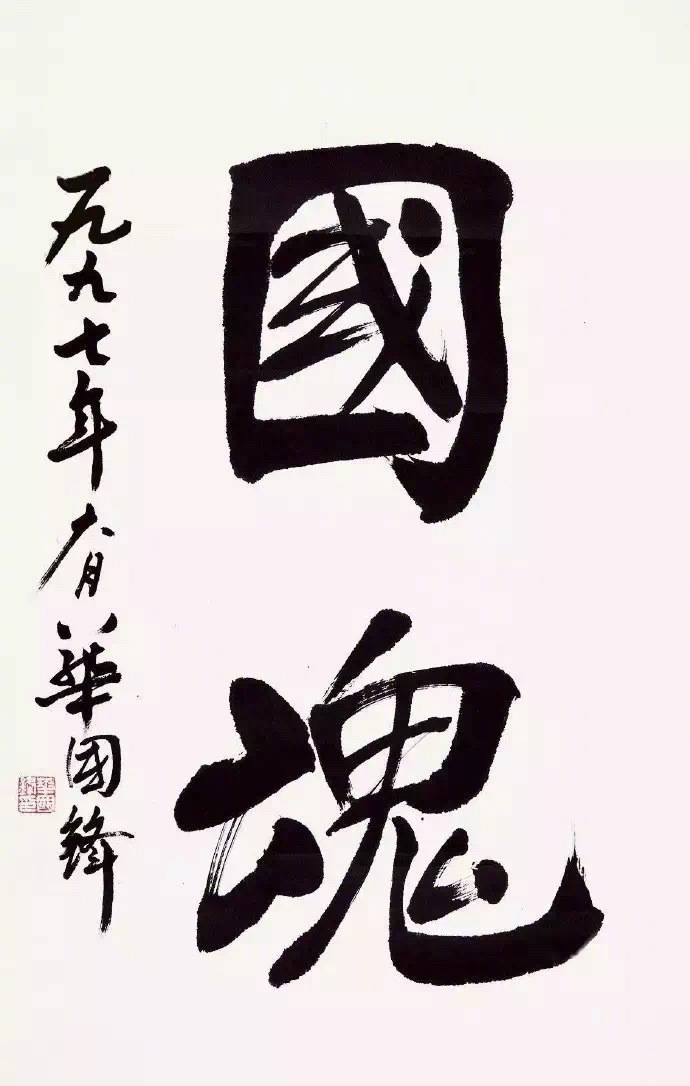 國魂
一九九七年六月 華國鋒